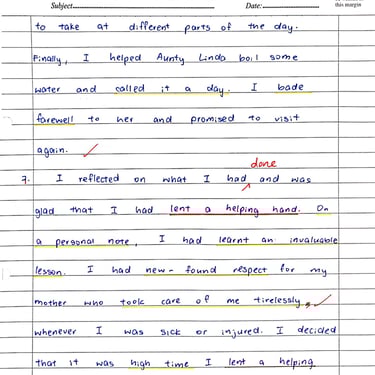 Subject Date: this margin
to take at different parts of the day.
Finally, I helped Aunty Linda boil some
water and called it a day. I bade
farewell to her and promised to visit
again.
done
7. I reflected on what I had and was
glad that I had lent a helping hand. On
a personal note, I had learnt an invaluable
lesson. I had new-found respect for my
mother who took care of me tirelessly
whenever I was sick or injured. I decided
that it was high time I lent a helping